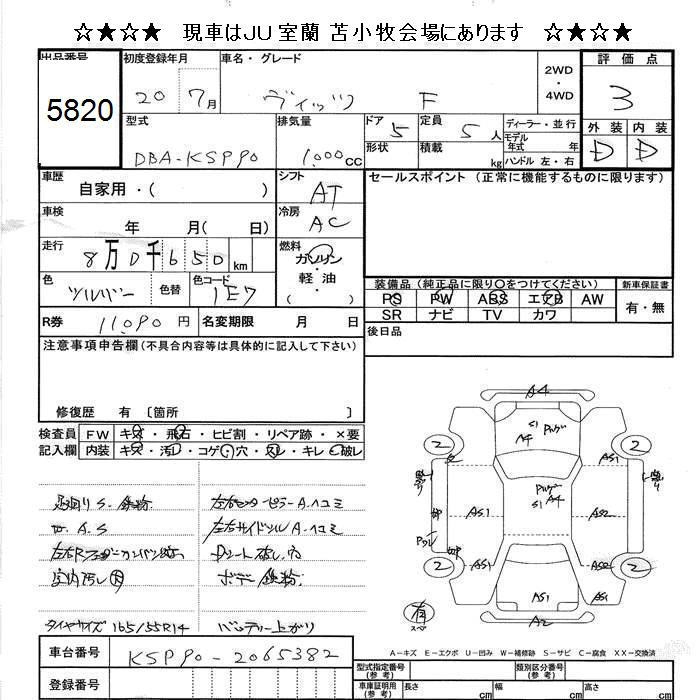 ☆★☆★ 現車はJU室蘭 苫小牧会場にあります ☆★☆★
出品番号 5820
初度登録年月 20 7月
車名・グレード ヴィッツ F
2WD・4WD
評価点 3
型式 DBA-KSP90
排気量 1,000cc
ドア 5
形状
定員 5人
積載 kg
ディーラー・並行
モデル年式 年式
ハンドル 左・右
外装 D
内装 D
車歴 自家用・( )
シフト AT
セールスポイント (正常に機能するものに限ります)
車検 年 月( 日)
冷房 AC
走行 8万0千650km
燃料 ガソリン・軽油 ( )
色 シルバー
色替
色コード 1E7
装備品 (純正品に限り○をつけてください)
新車保証書
PS PW ABS エアB AW
有・無
SR ナビ TV カワ
R券 11,090円
名変期限 月 日
後日品
注意事項申告欄(不具合内容等は具体的に記入して下さい)
修復歴 有 〔箇所 〕
検査員記入欄
FW キズ・飛石・ヒビ割・リペア跡・×要
内装 キズ・汚レ・コゲ・穴・スレ・キレ・破レ
足回りS.鉄粉
左右センターピラーA.ヘコミ
〃 A.S
左右サイドシルA.ヘコミ
室内汚し 大
ボデー鉄粉
タイヤサイズ 165/55R14
バッテリー上がり
A4
S1
A4
2
2
AS1
S1
A4
AS1
AS2
AS1
AS2
2
2
AS1
A2
有
スペ
A-キズ E-エクボ U-凹み W-補修跡 S-サビ C-腐食 XX-交換済
車台番号 KSP90-2065382
登録番号
型式指定番号(参考)
類別区分番号(参考)
車庫証明用(参考)
長さ cm
幅 cm
高さ cm